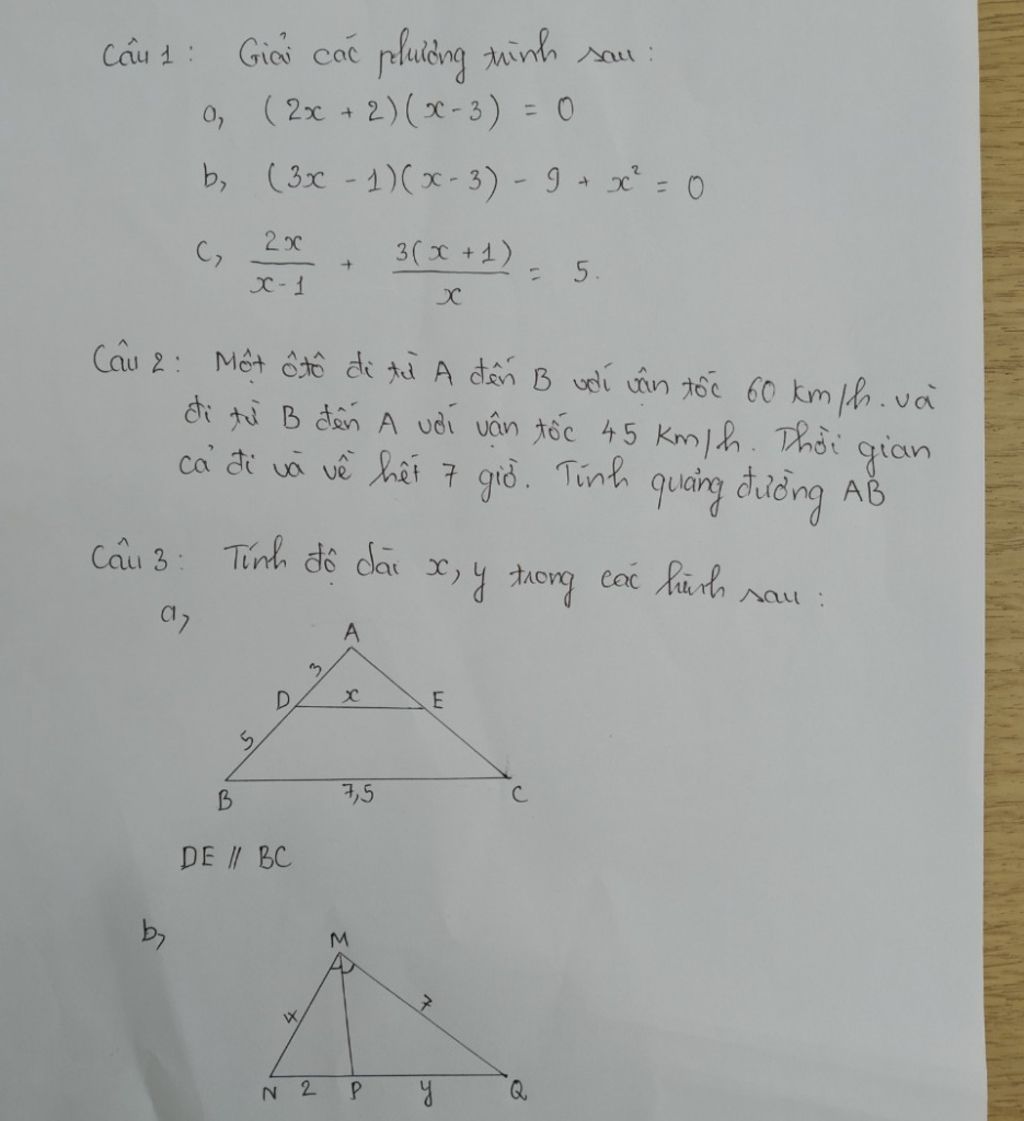 Câu 1 : Giải các phương trình sau :
a, (2x + 2)(x - 3) = 0
b, (3x - 1)(x - 3) - 9 + x² = 0
c, 2x/(x - 1) + 3(x + 1)/x = 5.
Câu 2 : Một ôtô đi từ A đến B với vân tốc 60 km/h. và
đi từ B đến A với vận tốc 45 km/h. Thời gian
cả đi và về hết 7 giờ. Tính quảng đường AB
Câu 3 : Tính độ dài x, y trong các hình sau :
a,
A
3
D x E
5
B 7,5 C
DE // BC
b,
M
4 7
N 2 P y Q